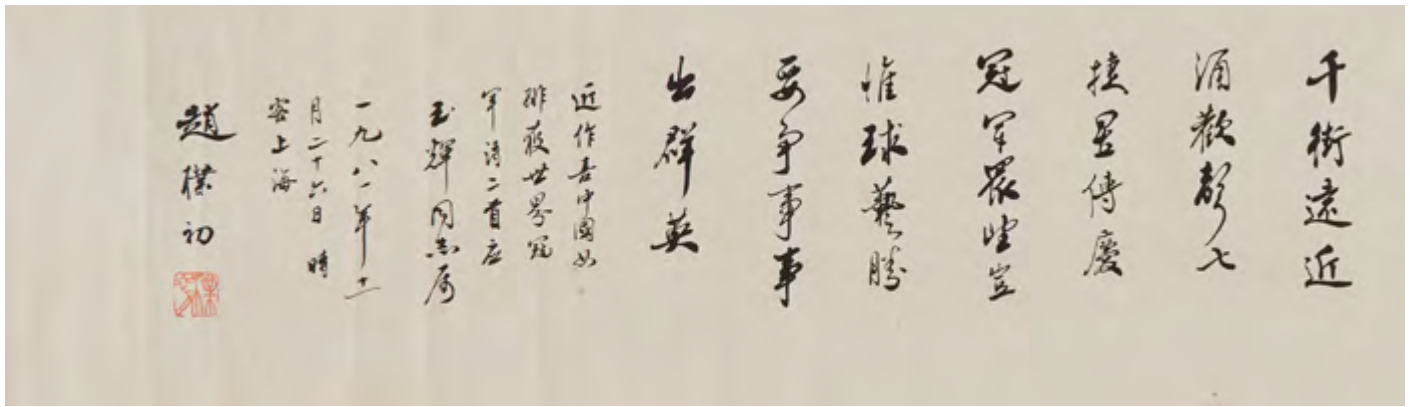 千街遠近
涌歡聲七
捷星傳慶
冠軍衆望豈
惟球藝勝
要爭事事
出群英
近作喜中國女
排获世界冠
军诗二首应
玉輝同志属
一九八一年十一
月二十六日 時
客上海
趙樸初